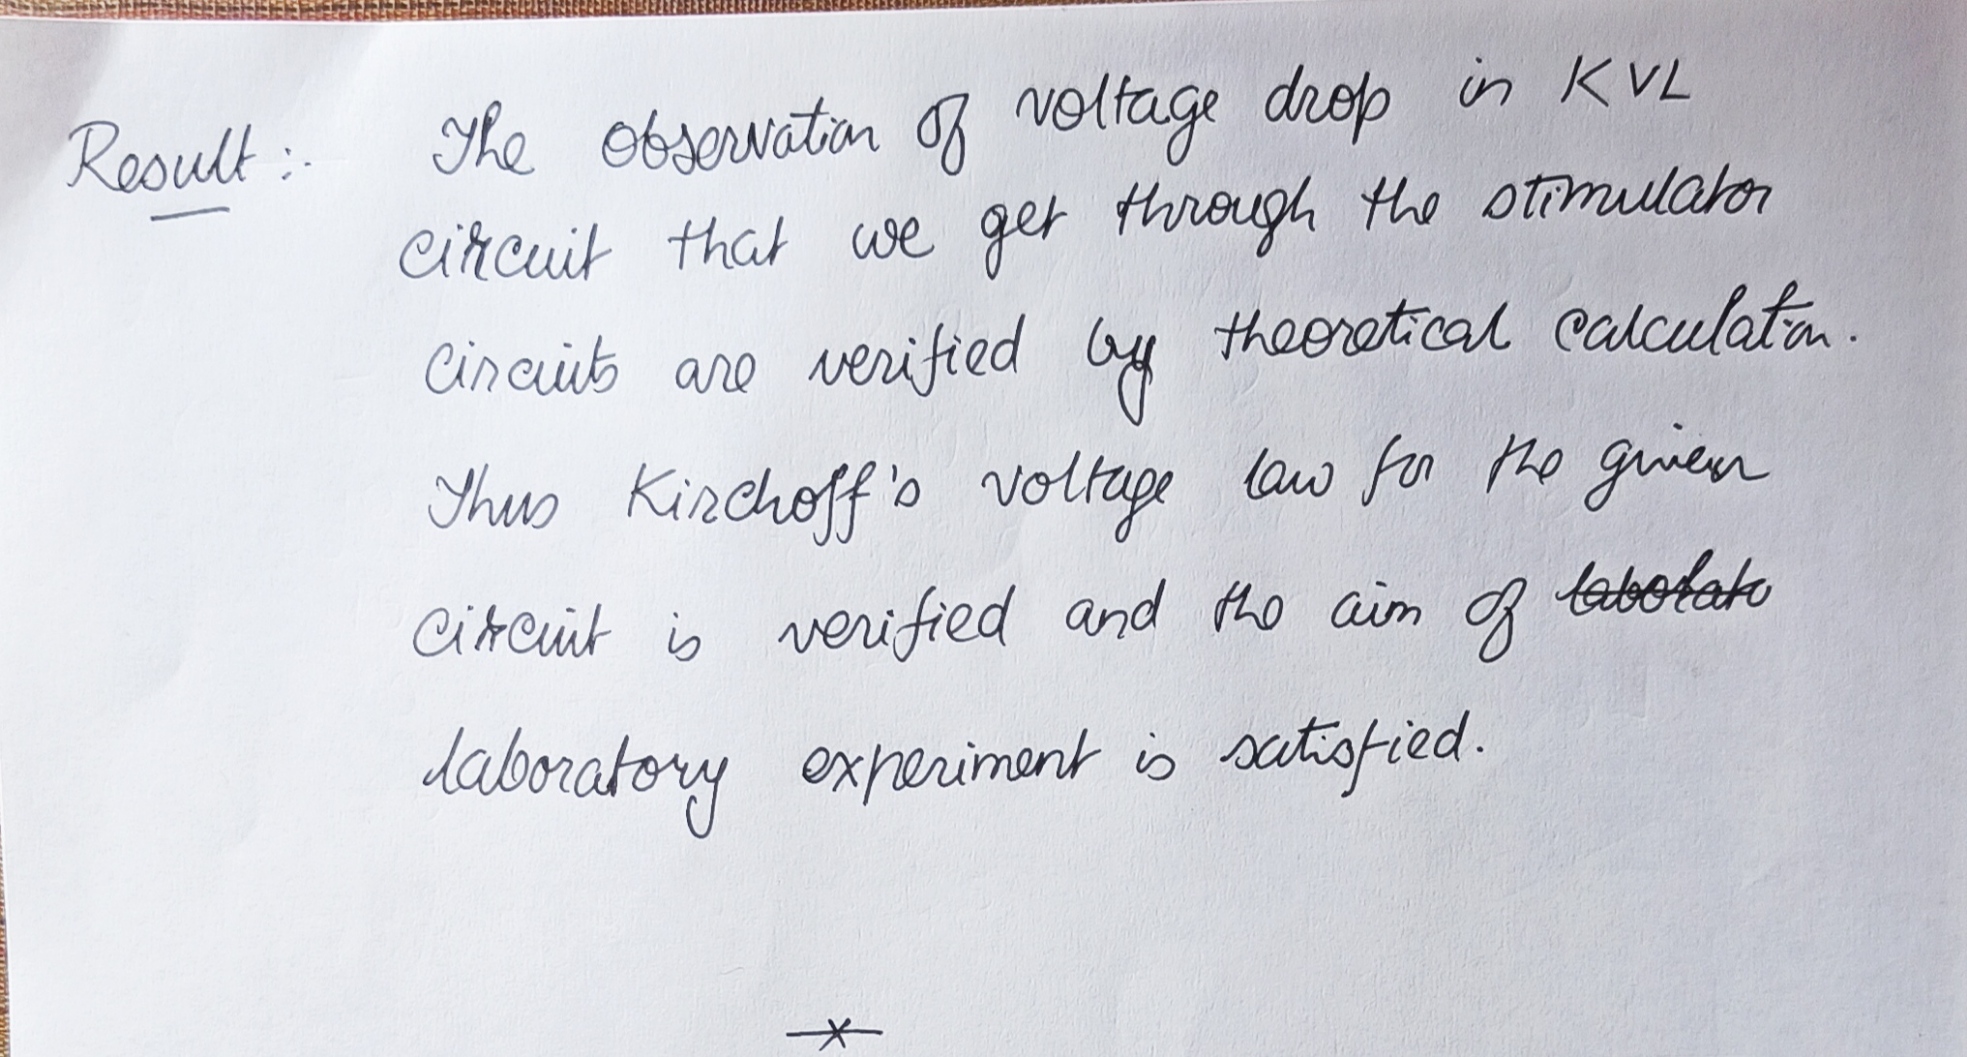 Result :- The observation of voltage drop in KVL
circuit that we get through the stimulator
circuits are verified by theoretical calculation.
Thus Kirchoff's voltage law for the given
circuit is verified and the aim of laborato
laboratory experiment is satisfied.